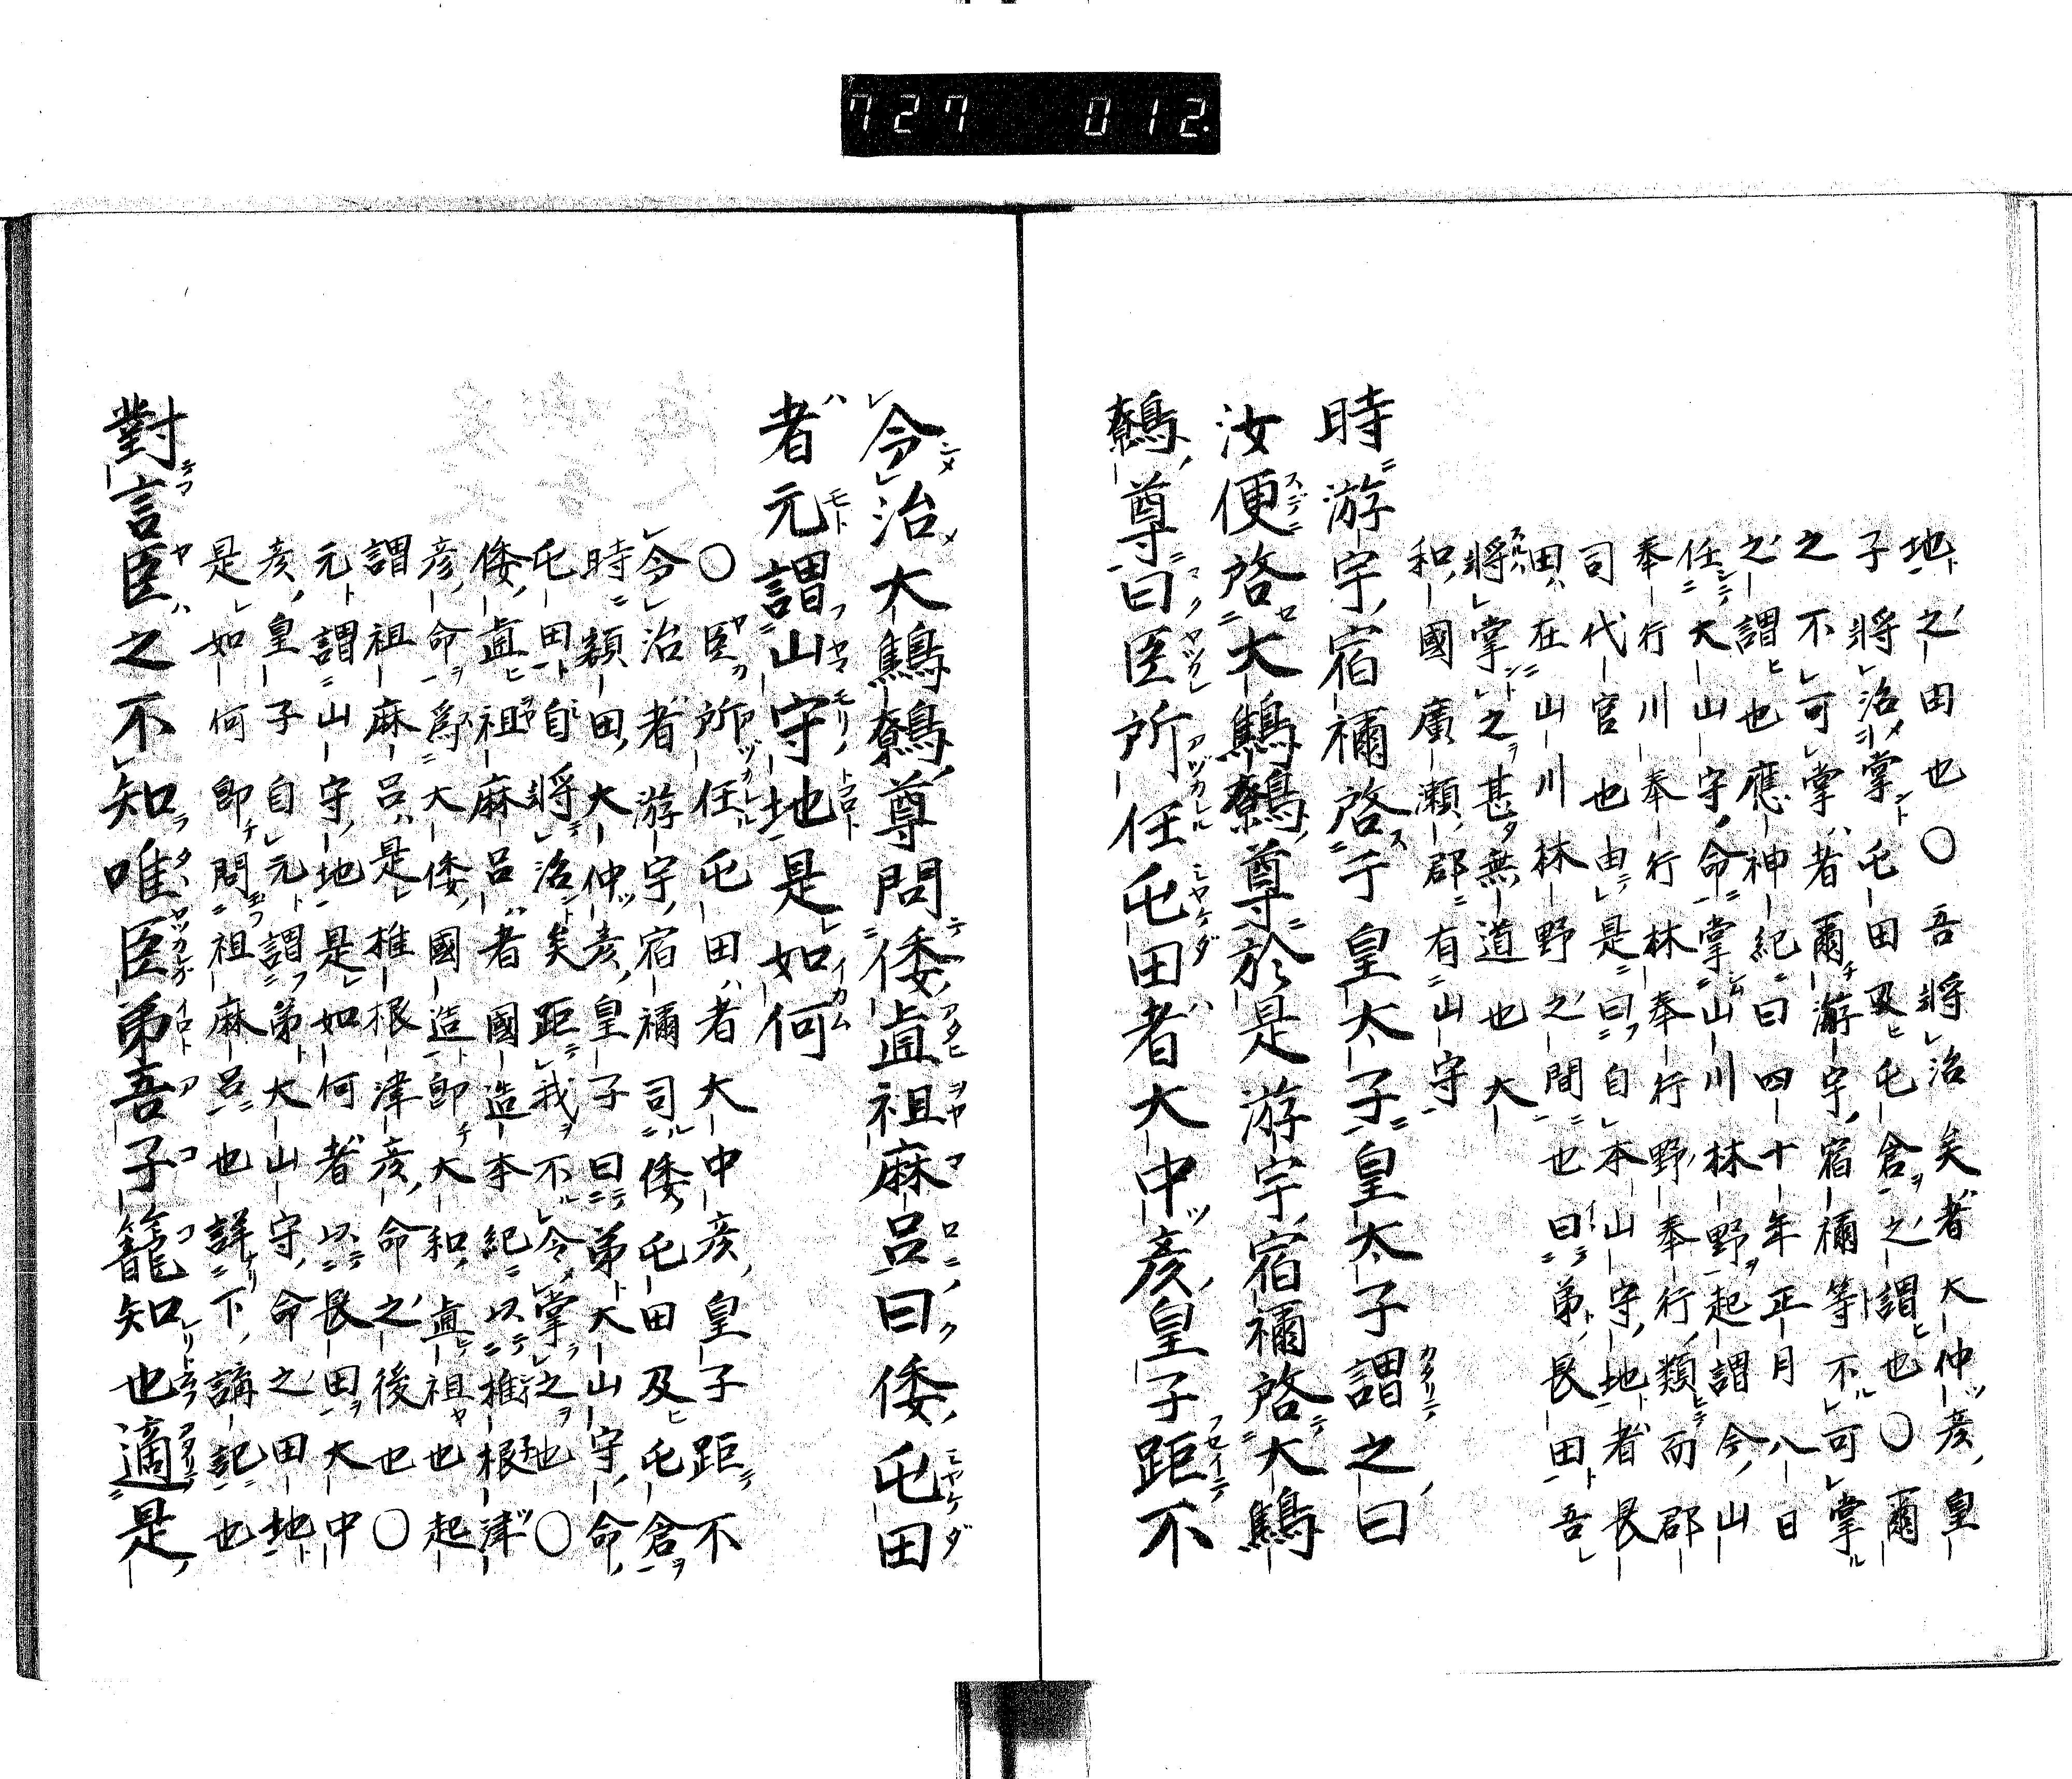 727 012.
地之田也〇吾將治矣者大仲彦皇
子將治掌屯田及屯倉之謂也〇爾
之不可掌者爾游宇宿禰等不可掌
之謂也應神紀曰四十年正月八日
任大山守命掌山川林野起謂今山
奉行川奉行林奉行野奉行類而郡
司代官也由是曰自本山守地者長
田在山川林野之間也曰弟長田吾
將掌之甚無道也大
和國廣瀬郡有山守
時游宇宿禰啓于皇太子皇太子謂之曰
汝便啓大鷦鷯尊於是游宇宿禰啓大鷦
鷯尊曰臣所任屯田者大中彦皇子距不
令治大鷦鷯尊問倭直祖麻呂曰倭屯田
者元謂山守地是如何
〇臣所任屯田者大中彦皇子距不
令治者游宇宿禰司倭屯田及屯倉
時額田大仲彦皇子曰弟大山守命
屯田自將治矣距我不令掌之也〇
倭直祖麻呂者國造本紀以椎根津
彦命爲大倭國造即大和直祖也起
謂祖麻呂是椎根津彦命之後也〇
元謂山守地是如何者以長田大中
彦皇子自元謂弟大山守命之田地
是如何即問祖麻呂也詳下誦記也
對言臣之不知唯臣弟吾子籠知也適是